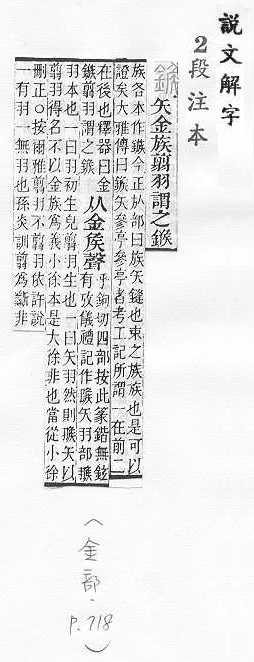 說文解字
2段注本
鍭 矢金族翦羽謂之鍭
族各本作鏃今正㫃部曰族矢鏠也束之族族也是可以
證矣大雅傳曰鍭矢參亭參亭者考工記所謂一在前二
在後也釋器曰金
鏃翦羽謂之鍭
从金矦聲
乎鉤切四部按此篆鍇無鉉
有攷儀禮記作翭矢羽部翭
羽本也一曰羽初生皃翦羽生也一曰矢羽然則翭矢以
翦羽得名不以金族爲義小徐本是大徐非也當從小徐
刪正○按爾雅翦羽不翦羽依許說
一有羽一無羽也孫炎訓翦爲斷非
(金部.p.718)